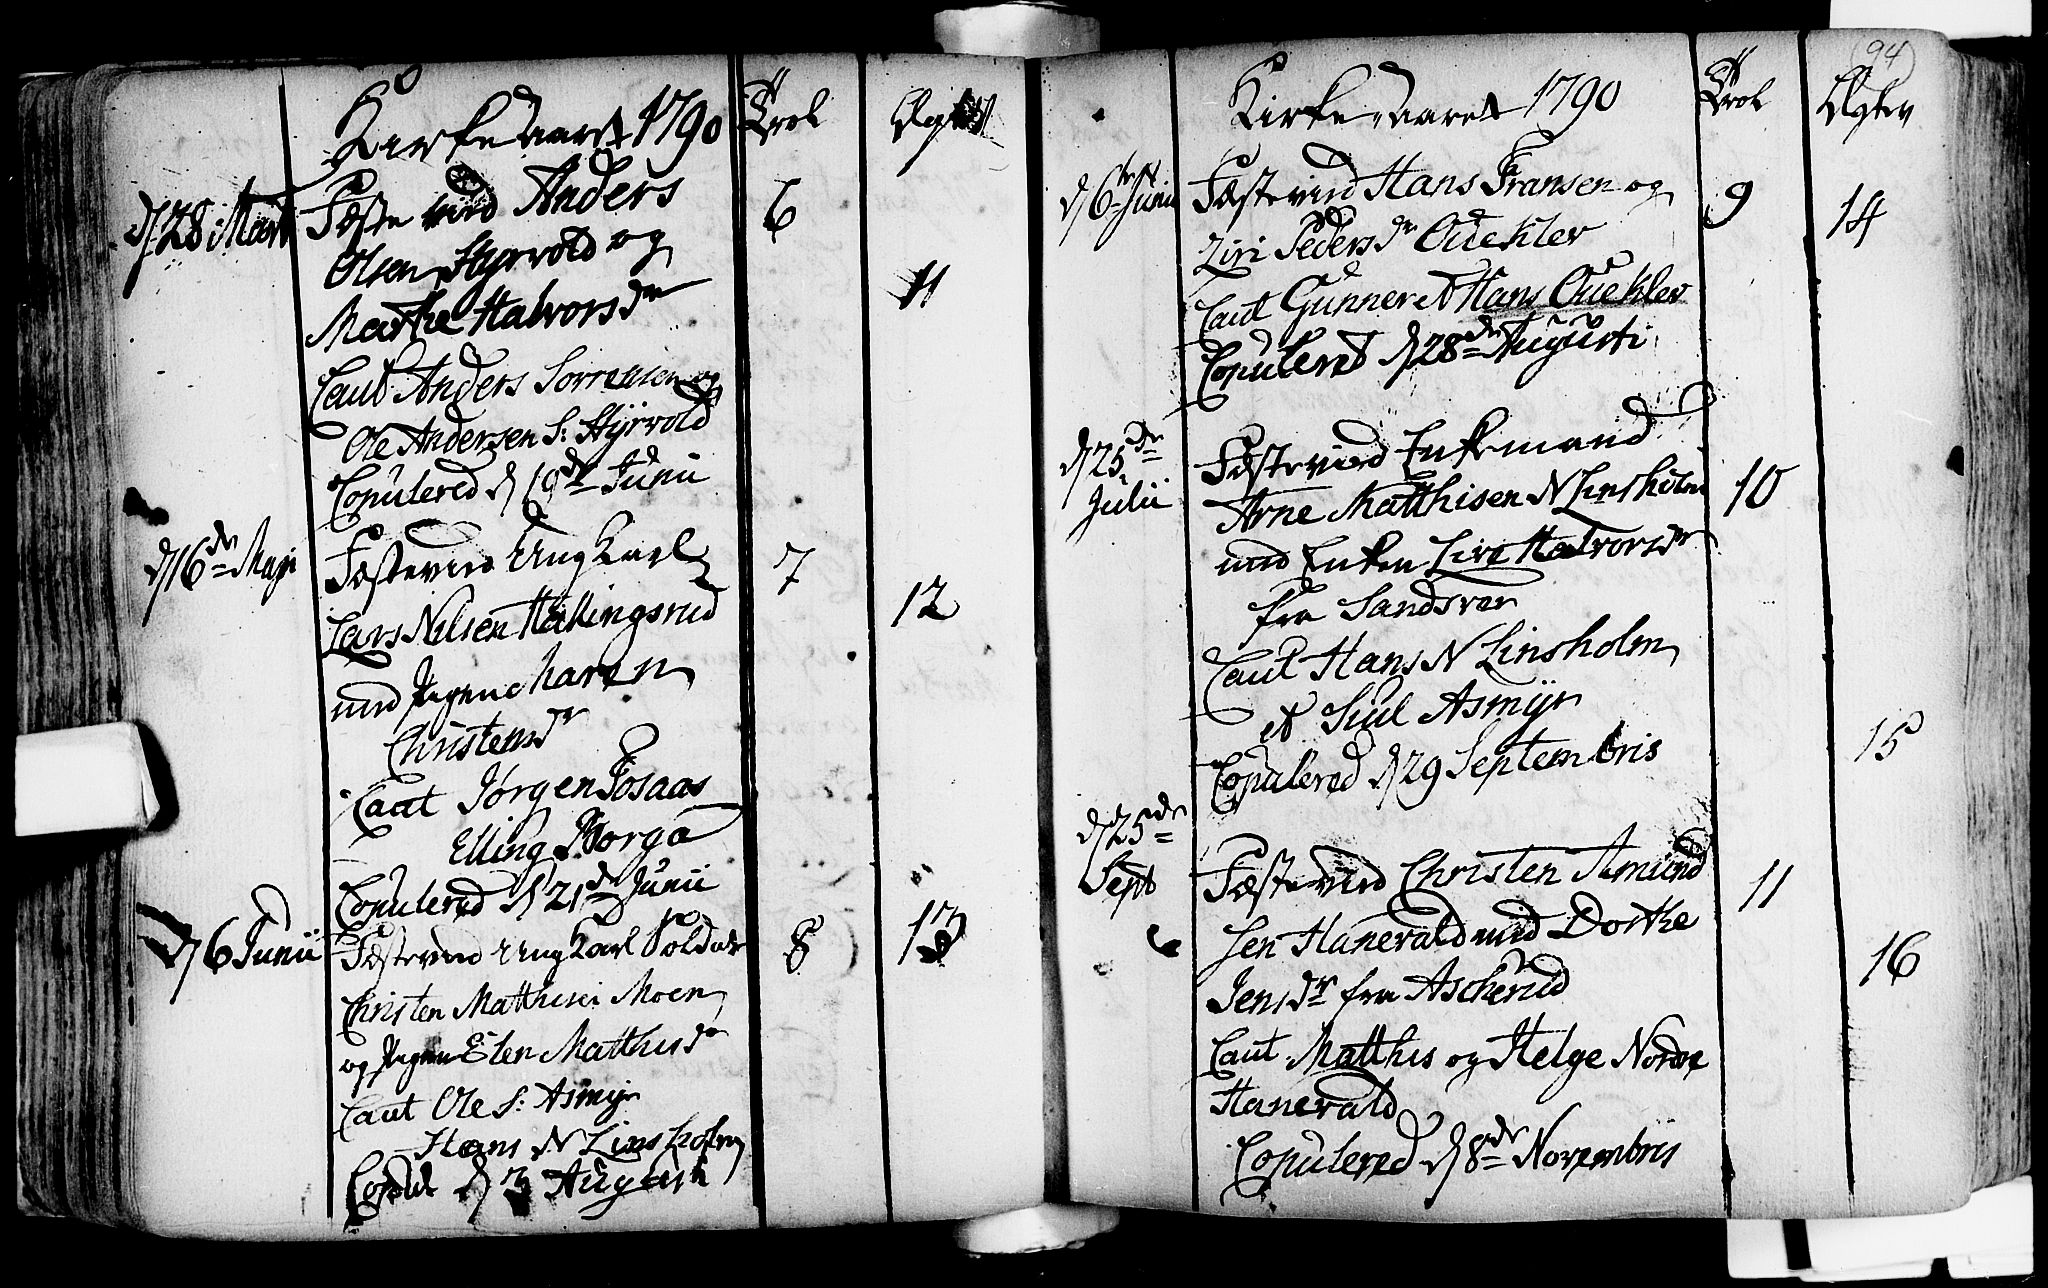 Kirke Aaret 1790
Trol
d. 28 Mart
Fæste vied Anders
6
Olsen Styrvold og
11
Marthe Halvorsdr
Caut Anders Sørrensen og
Ole Andersen S: Styrvold
Copulered d 19de Junii
d 16de Maji
Fæstevied Ung Karl
7
12
Lars Nilsen Hallingsrud
med Pigen Maren
Christensdr
Caut Jørgen Fosaas
Elling Borge
Copulered d 21de Junii
d 6 Junii
Fæstevied Ung Karl Soldat
8
13
Christen Matthisen Moen
og Pigen Elen Matthisdr
Caut Ole S: Asmyr
Hans N Linsholm
Copul d 3 Augusti
(94)
Kirke Aaret 1790
Trol
Ægtev
d 6 Junii
Fæstevied Hans Fransen og
9
14
Liri Pedersdr Ouekler
Caut Gunner et Hans Ouekler
Copulered d 28de Augusti
d 25de
Julii
Fæstevied Enkemand
Arne Matthisen N Linsholm
10
med Enken Live Halvorsdr
fra Sandsver
Caut Hans N Linsholm
et Juul Asmyr
15
Copulered d 29 Septembris
d 25de
Sept
Fæstevied Christen Amund
11
sen Hanevald med Dorthe
16
Jensdr fra Ascherud
Caut Matthis og Helge Nordre
Hanevald
Copulered d 8de Novembris